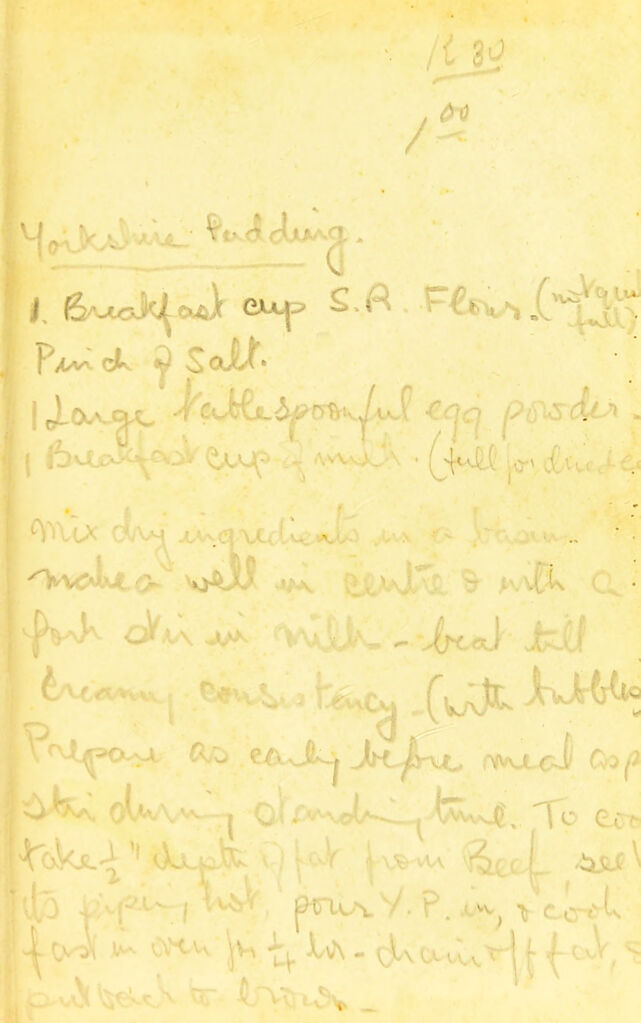 R 30
1 00
Yorkshire Pudding.
1. Breakfast cup S.R. Flour. (not
full)
Pinch of Salt.
1 Large tablespoonful egg powder.
1 Breakfast cup of milk. (full for dried
mix dry ingredients in a basin.
make a well in centre & with a
fork stir in milk - beat till
creamy consistency - (with bubbles
Prepare as early before meal as
stir during standing time. To
take ½" depth of fat from Beef, see
its piping hot, pour Y.P. in, & cook
fast in oven for ¼ hr - drain off fat, &
put back to brown -